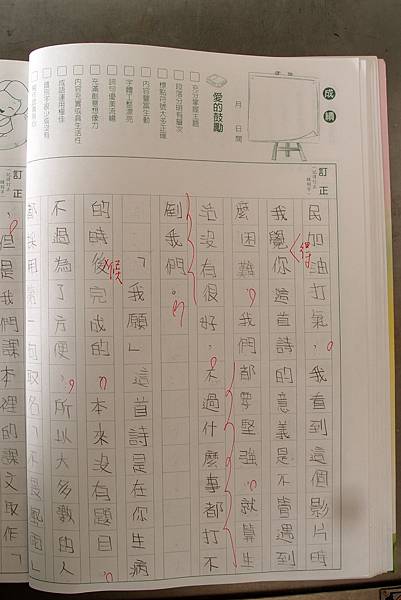 成績
月 日
愛的鼓勵
充分掌握主題
段落分明有層次
標點符號大多正確
內容豐富生動
字體工整漂亮
詞句優美流暢
充滿創意想像力
成語運用極佳
錯別字很少或沒有
訂正
民加油打氣，我看到這個影片時
得
我覺你這首詩的意義是不管遇到
麼困難，我們都要堅強，就算生
活沒有很好，不過什麼事都打不
倒我們。
「我願」這首詩是在你生病
候
的時後完成的，本來沒有題目，
不過為了方便，所以大多數的人
都採用第一句取名「不畏風雨」
訂正
，但是我們課本裡的課文取作「